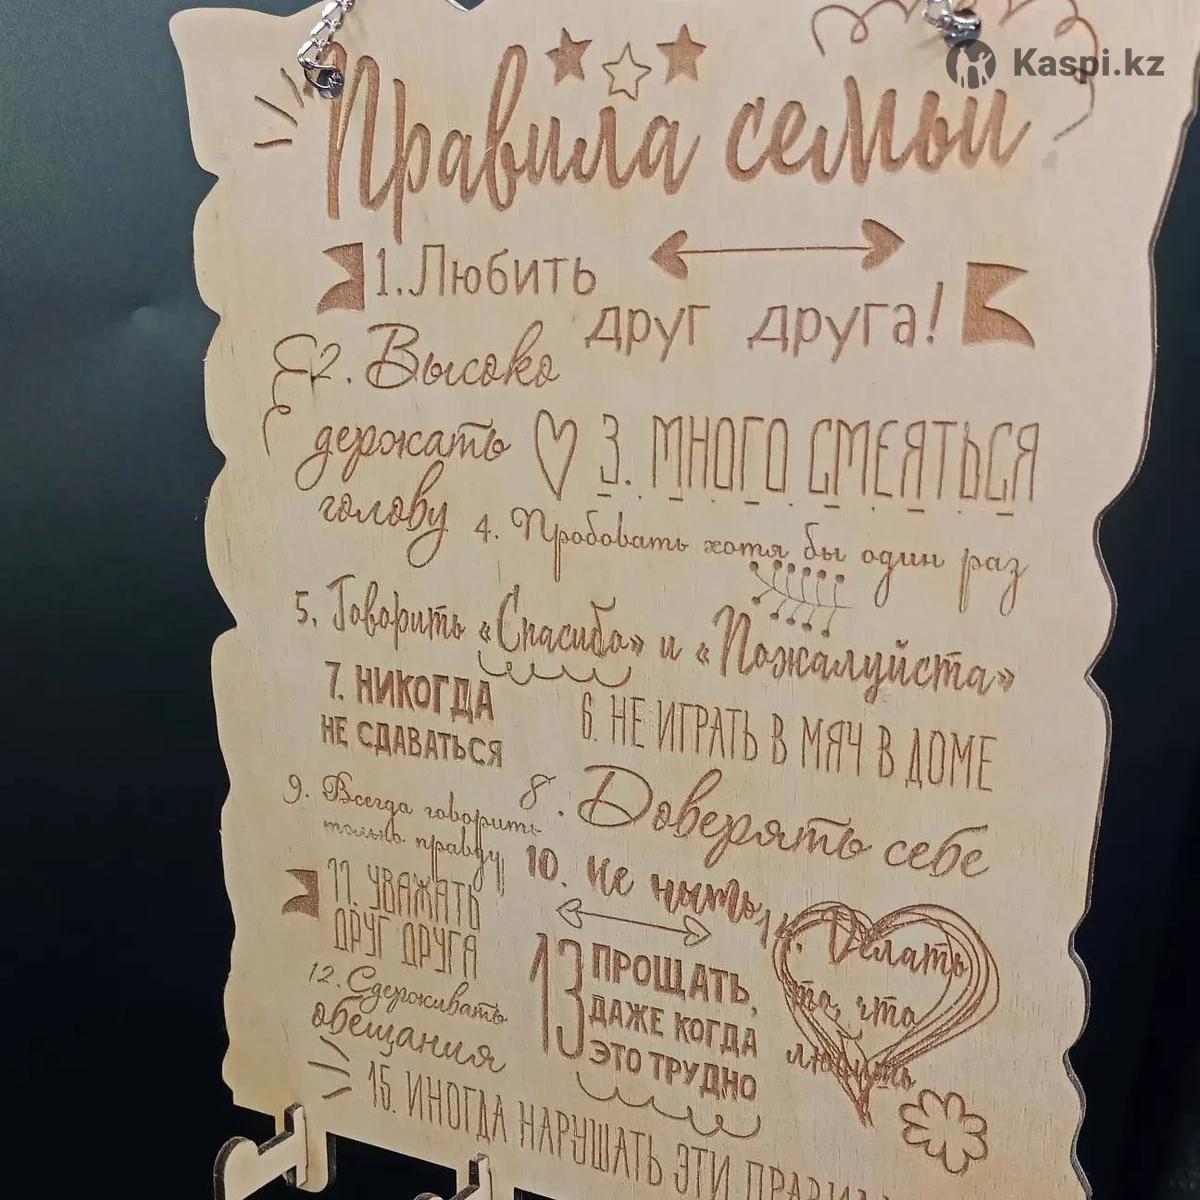 Kaspi.kz
Правила семьи
1. Любить
друг друга!
2. Высоко
держать
голову
3. МНОГО СМЕЯТЬСЯ
4. Пробовать хотя бы один раз
5. Говорить «Спасибо» и «Пожалуйста»
7. НИКОГДА
НЕ СДАВАТЬСЯ
6. НЕ ИГРАТЬ В МЯЧ В ДОМЕ
8. Доверять себе
9. Всегда говорить
только правду
10. не ныть
11. УВАЖАТЬ
ДРУГ ДРУГА
12. Сдерживать
обещания
13 ПРОЩАТЬ,
ДАЖЕ КОГДА
ЭТО ТРУДНО
14. Делать
то, что
любить
15. ИНОГДА НАРУШАТЬ ЭТИ